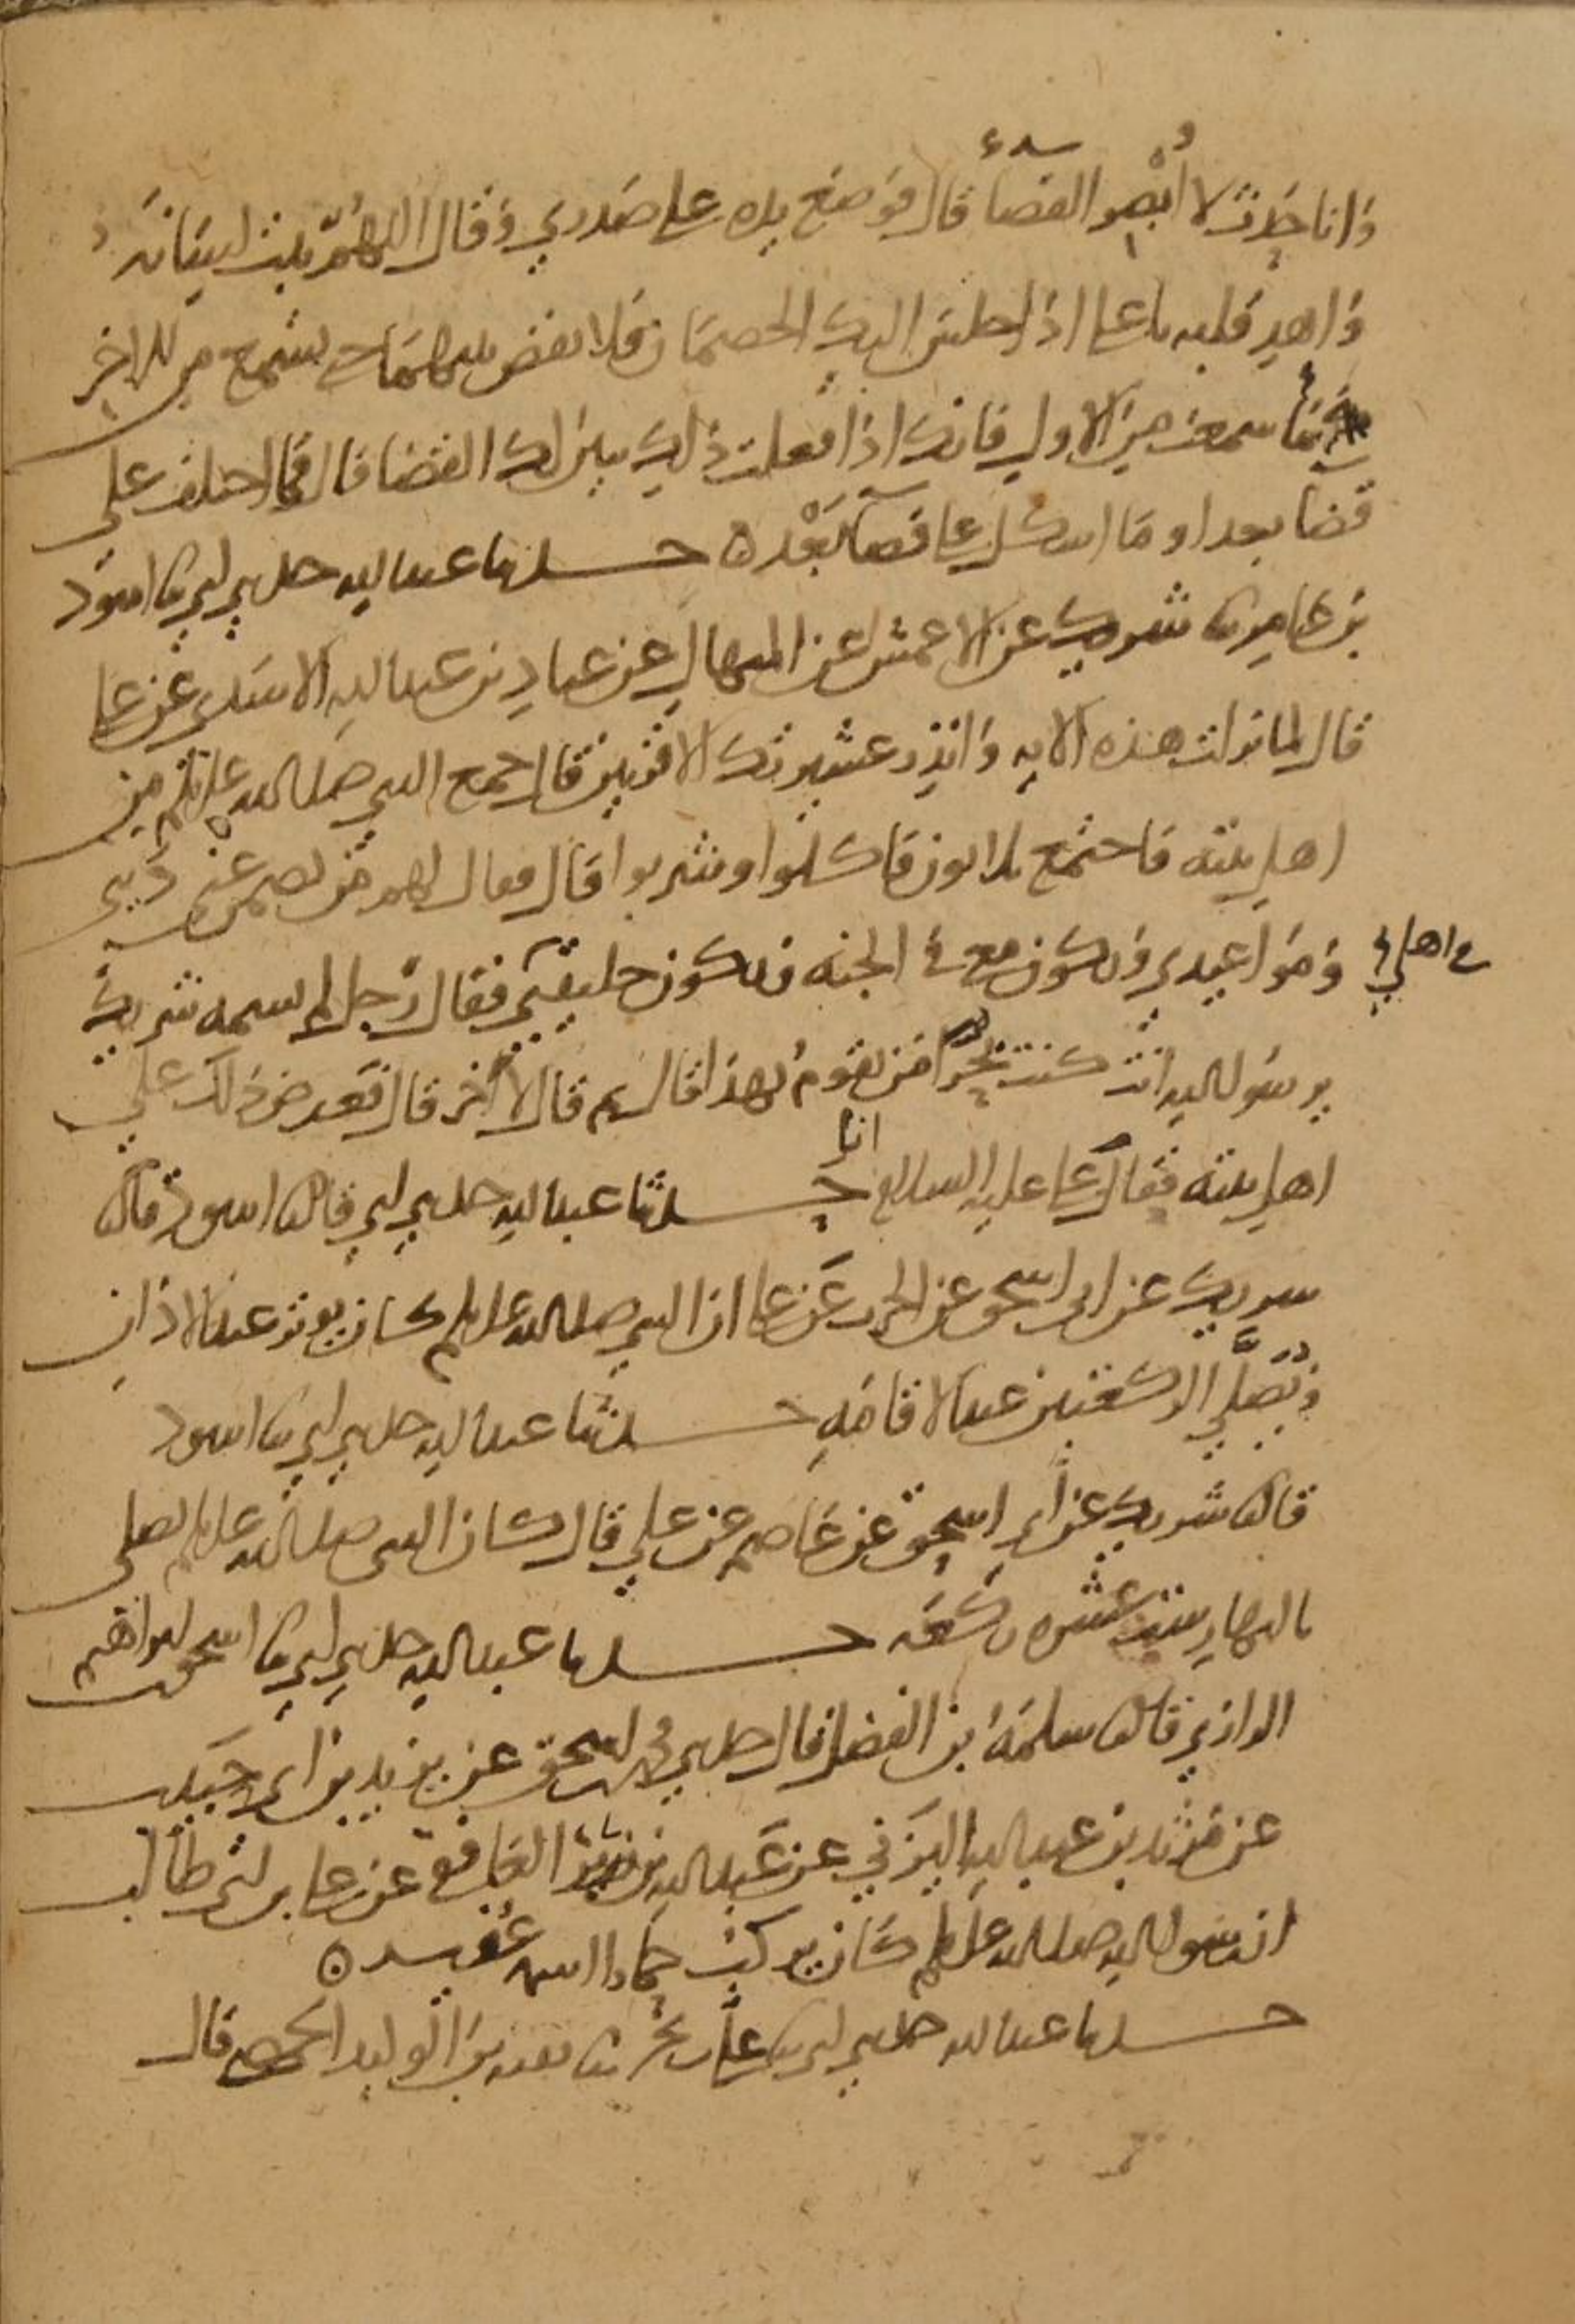 وانا حدث لا ابصر القضا قال فوضع يده على صدري وقال اللهم ثبت لسانه
واهد قلبه يا علي اذا جلس اليك الخصمان فلا تقض بينهما حتى تسمع من الاخر
كما سمعت من الاول فانك اذا فعلت ذلك تبين لك القضا قال فما اختلف علي
قضا بعد او ما اشكل علي قضا بعد ه حدثنا عبد الله حدثني ابي ثنا اسود
بن عامر ثنا شريك عن الاعمش عن المنهال عن عباد بن عبد الله الاسدي عن علي
قال لما نزلت هذه الايه وانذر عشيرتك الاقربين قال جمع النبي صلى الله عليه وسلم من
اهل بيته فاجتمع ثلاثون فاكلوا وشربوا قال فقال لهم من يضمن عني ديني
ومواعيدي ويكون معي في الجنه ويكون خليفتي في اهلي فقال رجل لم يسمه شريك
يرسول الله انت كنت بحرا من يقوم بهذا قال ثم قال الاخر قال فعرض ذلك على
اهل بيته فقال علي عليه السلام انا حدثنا عبد الله حدثني ابي قال ثنا اسود قال ثنا
شريك عن ابي اسحق عن الحرث عن علي ان النبي صلى الله عليه وسلم كان يوتر عند الاذان
ويصلي الركعتين عند الاقامه حدثنا عبد الله حدثني ابي ثنا اسود
قال ثنا شريك عن ابي اسحق عن عاصم عن علي قال كان النبي صلى الله عليه وسلم يصلي
بالنهار ست عشره ركعه حدثنا عبد الله حدثني ابي ثنا اسحق بن ابراهيم
الرازي قال ثنا سلمة بن الفضل قال حدثني محمد بن اسحق عن يزيد بن ابي حبيب
عن مرثد بن عبد الله اليزني عن عبد الله بن زرير الغافقي عن علي بن ابي طالب
ان رسول الله صلى الله عليه وسلم كان يركب حمارا اسمه عفير ه
حدثنا عبد الله حدثني ابي ثنا علي بن بحر ثنا بقيه بن الوليد الحمصي قال